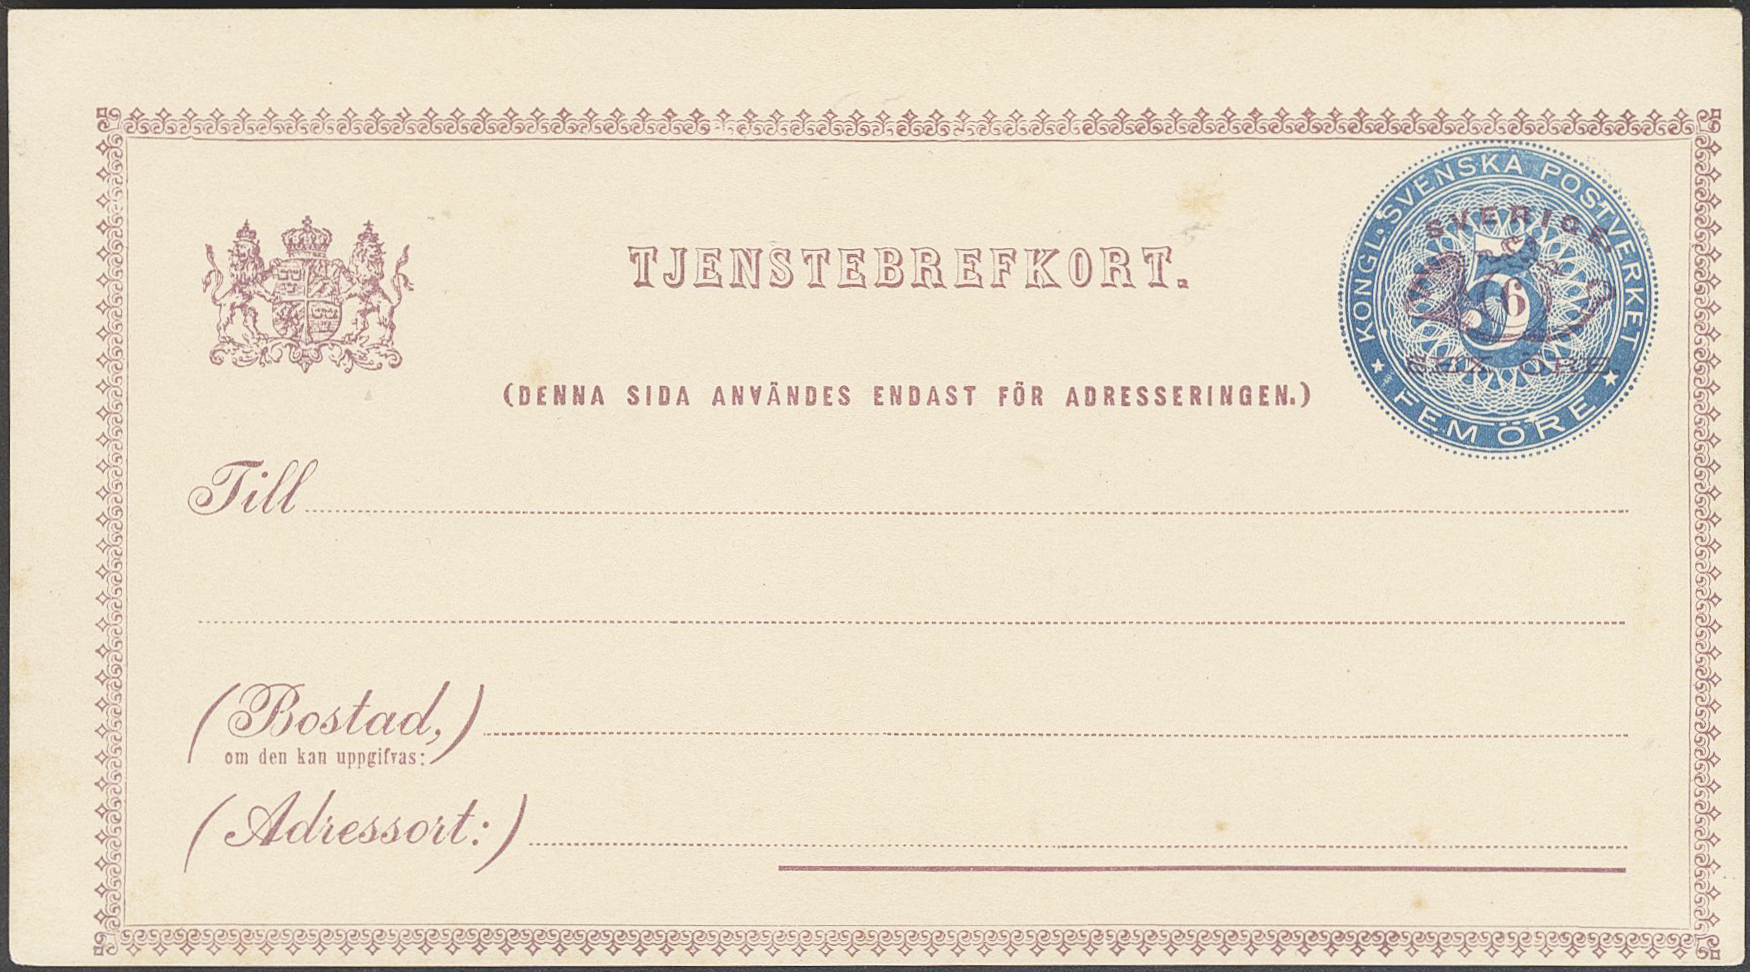 TJENSTEBREFKORT.
KONGL. SVENSKA POSTVERKET
SVERIGE
5
6
SEX ÖRE.
FEM ÖRE
(DENNA SIDA ANVÄNDES ENDAST FÖR ADRESSERINGEN.)
Till
(Bostad,)
om den kan uppgifvas:
(Adressort:)